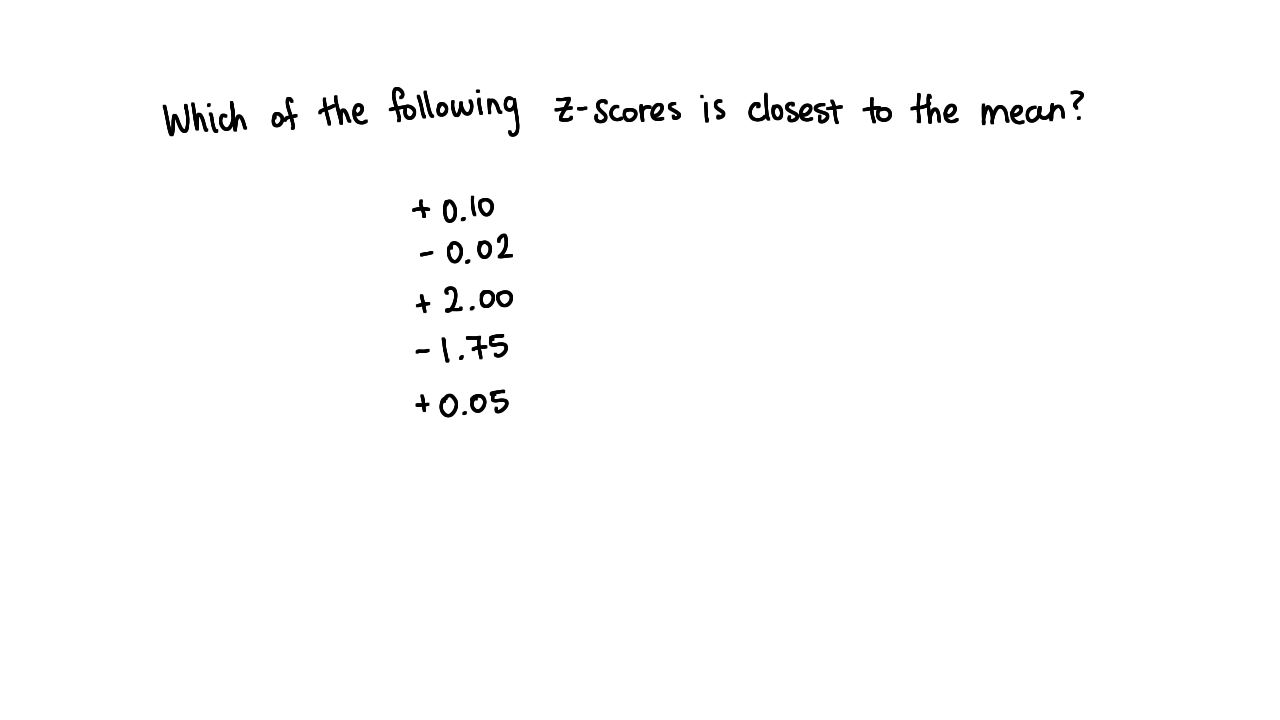 Which of the following z-scores is closest to the mean?
+ 0.10
- 0.02
+ 2.00
- 1.75
+ 0.05